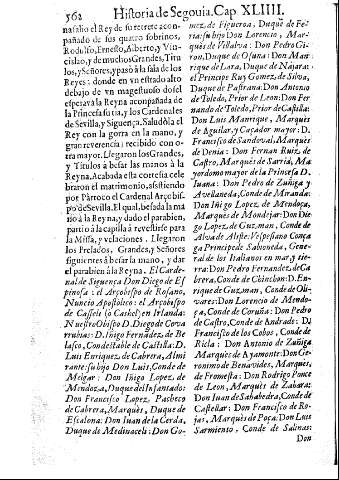 562 Historia de Segouia. Cap. XLIIII.
nasalio el Rey de su retrete acon-
pañado de sus quatro sobrinos,
Rodulfo, Ernesto, Alberto, y Vin-
cislao, y de muchos Grandes, Titu
los, y Señores, y pasò à la sala de los
Reyes: donde en vn estrado alto
debajo de vn magestuoso dosel
esperava la Reyna acompañada de
la Princesa su tia, y los Cardenales
de Sevilla, y Siguença. Saludòla el
Rey con la gorra en la mano, y
gran reverencia; recibido con o-
otra mayor. Llegaron los Grandes,
y Titulos à besar las manos à la
Reyna. Acabada esta cortesia cele
braron el matrimonio, asistiendo
por Pàrroco el Cardenal Arçobis-
po de Sevilla. El qual, besada la ma
no à la Reyna, y dado el parabien,
partio à la capilla à revestirse para
la Missa, y velaciones. Llegaron
los Prelados, Grandes, y Señores
siguientes à besar la mano, y dar
el parabien à la Reyna. El Carde-
nal de Siguença Don Diego de Es
pinosa: el Arçobispo de Rosano,
Nuncio Apostolico: el Arçobispo
de Cassels (o Cashel) en Irlanda:
Nuestro Obispo D. Diego de Cova
rrubias: D. Iñigo Fernandez de Ve
lasco, Condestable de Castilla: D.
Luis Enriquez de Cabrera, Almi
rante: su hijo Don Luis, Conde de
Melgar: Don Iñigo Lopez de
Mendoza, Duque del Infantado:
Don Francisco Lopez Pacheco
de Cabrera, Marquès, Duque de
Escalona: Don Iuan de la Cerda,
Duque de Medinaceli: Don Go-
mez de Figueroa, Duque de Fe-
ria: su hijo Don Lorencio, Mar-
quès de Villalva: Don Pedro Gi-
ron, Duque de Osuna: Don Man-
rique de Lara, Duque de Najara:
el Principe Ruy Gomez de Silva,
Duque de Pastrana: Don Antonio
de Toledo, Prior de Leon: Don Fer
nando de Toledo, Prior de Castilla:
Don Luis Manrique, Marquès
de Aguilar, y Caçador mayor: D.
Francisco de Sandoval, Marquès
de Denia: Don Fernan Ruiz de
Castro, Marquès de Sarria, Ma
yordomo mayor de la Princesa D.
Iuana: Don Pedro de Zuñiga y
Avellaneda, Conde de Miranda:
Don Iñigo Lopez de Mendoça,
Marquès de Mondejar: Don Die
go Lopez de Guzman, Conde de
Alva de Aliste: Vespesiano Gonça
ga Principe de Saboneda, Gene-
ral de los Italianos en mar y tie-
rra: Don Pedro Fernandez de Ca-
brera, Conde de Chinchon: D. En-
rique de Guzman, Conde de Oli-
vares: Don Lorencio de Mendo-
ça, Conde de Coruña: Don Pedro
de Castro, Conde de Andrade: D.
Francisco de los Cobos, Conde de
Ricla: Don Antonio de Zuñiga
Marquès de Ayamonte: Don Ge-
ronimo de Benavides, Marquès
de Fromesta: Don Rodrigo Ponce
de Leon, Marquès de Zahara:
Don Iuan de Sahabedra, Conde de
Castellar: Don Francisco de Ro-
jas, Marquès de Poça: Don Luis
Sarmiento, Conde de Salinas:
Don